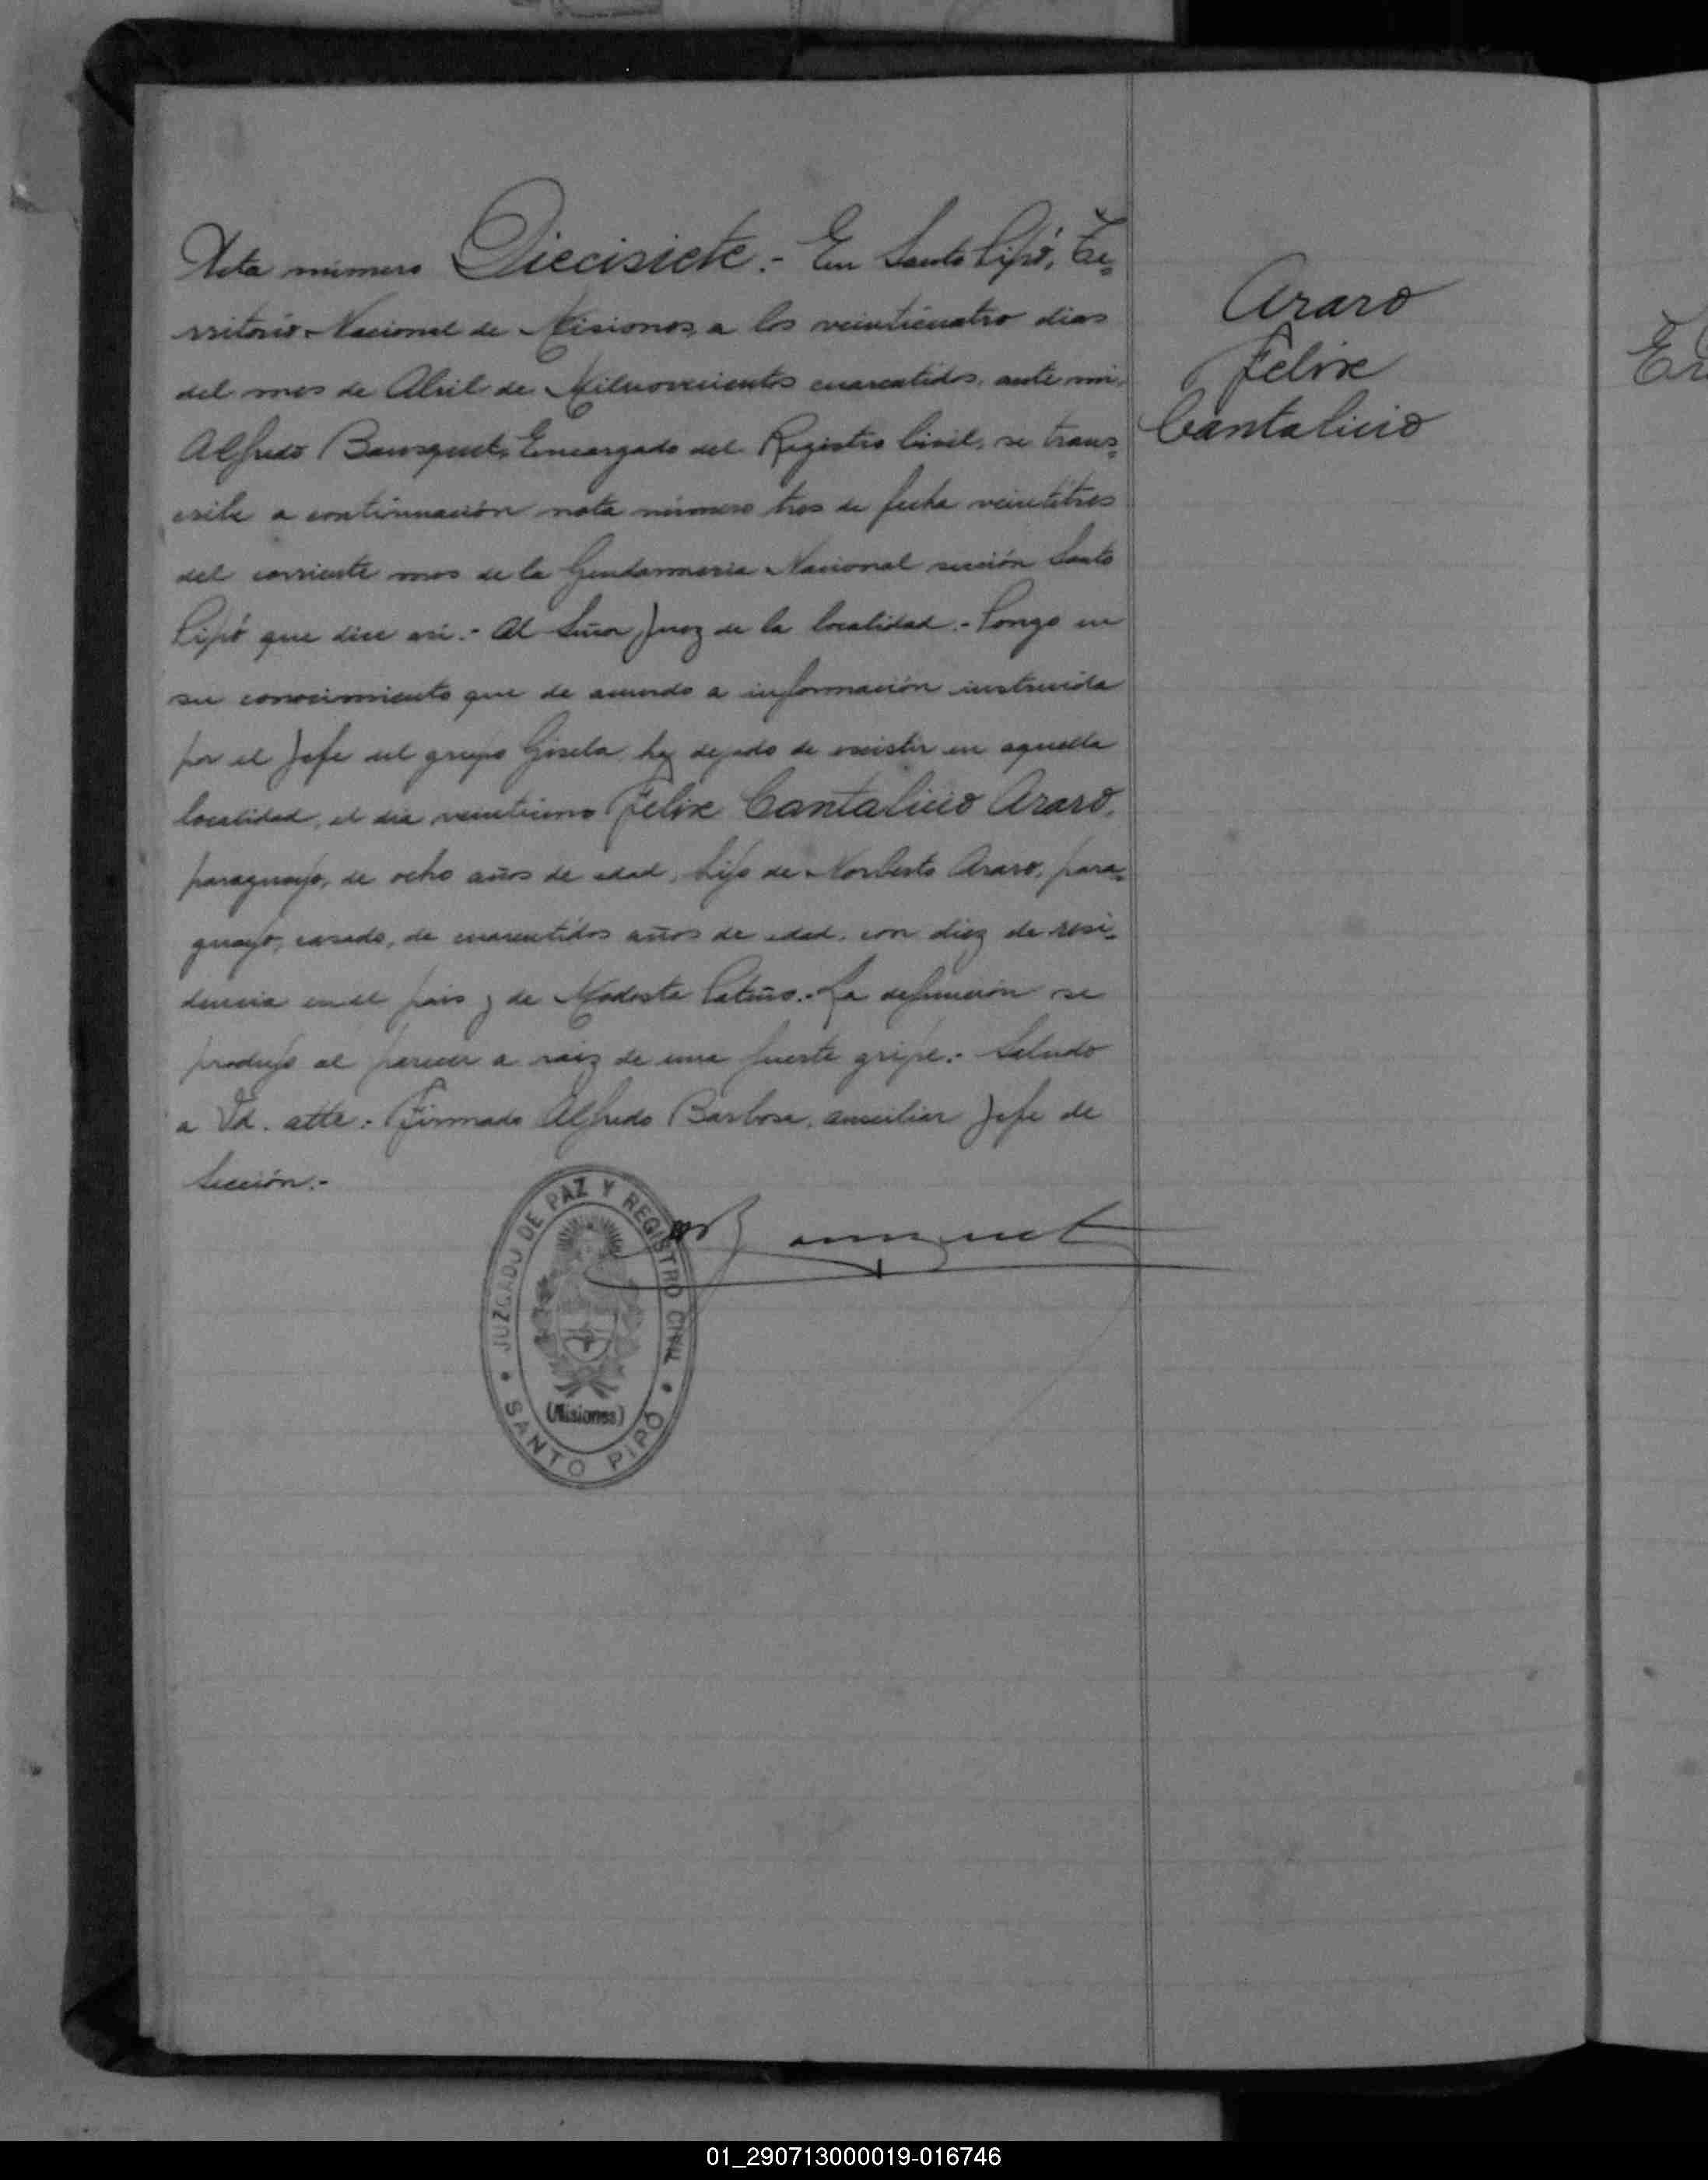 Acta número Diecisiete.- En Santo Pipó, Te=
rritorio Nacional de Misiones, a los veinticuatro dias
del mes de Abril de Milnovecientos cuarentidos, ante mi,
Alfredo Bousquet, Encargado del Registro Civil, se trans=
cribe a continuación nota número tres de fecha veintitres
del corriente mes de la Gendarmeria Nacional sección Santo
Pipó que dice asi.- Al Señor Juez de la localidad.- Pongo en
su conocimiento que de acuerdo a información instruida
por el Jefe del grupo Gisela, ha dejado de existir en aquella
localidad, el dia veintiuno Felix Cantalicio Araro,
paraguayo, de ocho años de edad, hijo de Norberto Araro, para=
guayo, casado, de cuarentidos años de edad, con diez de resi=
dencia en el pais y de Modesta.- La defunción se
produjo al parecer a raiz de una fuerte gripe.- Saludo
a Vd. atte.- Firmado Alfredo Barbosa, auxiliar Jefe de
Sección.-
Araro
Felix
Cantalicio
Bousquet
JUZGADO DE PAZ Y REGISTRO CIVIL
(Misiones)
SANTO PIPÓ
01_290713000019-016746